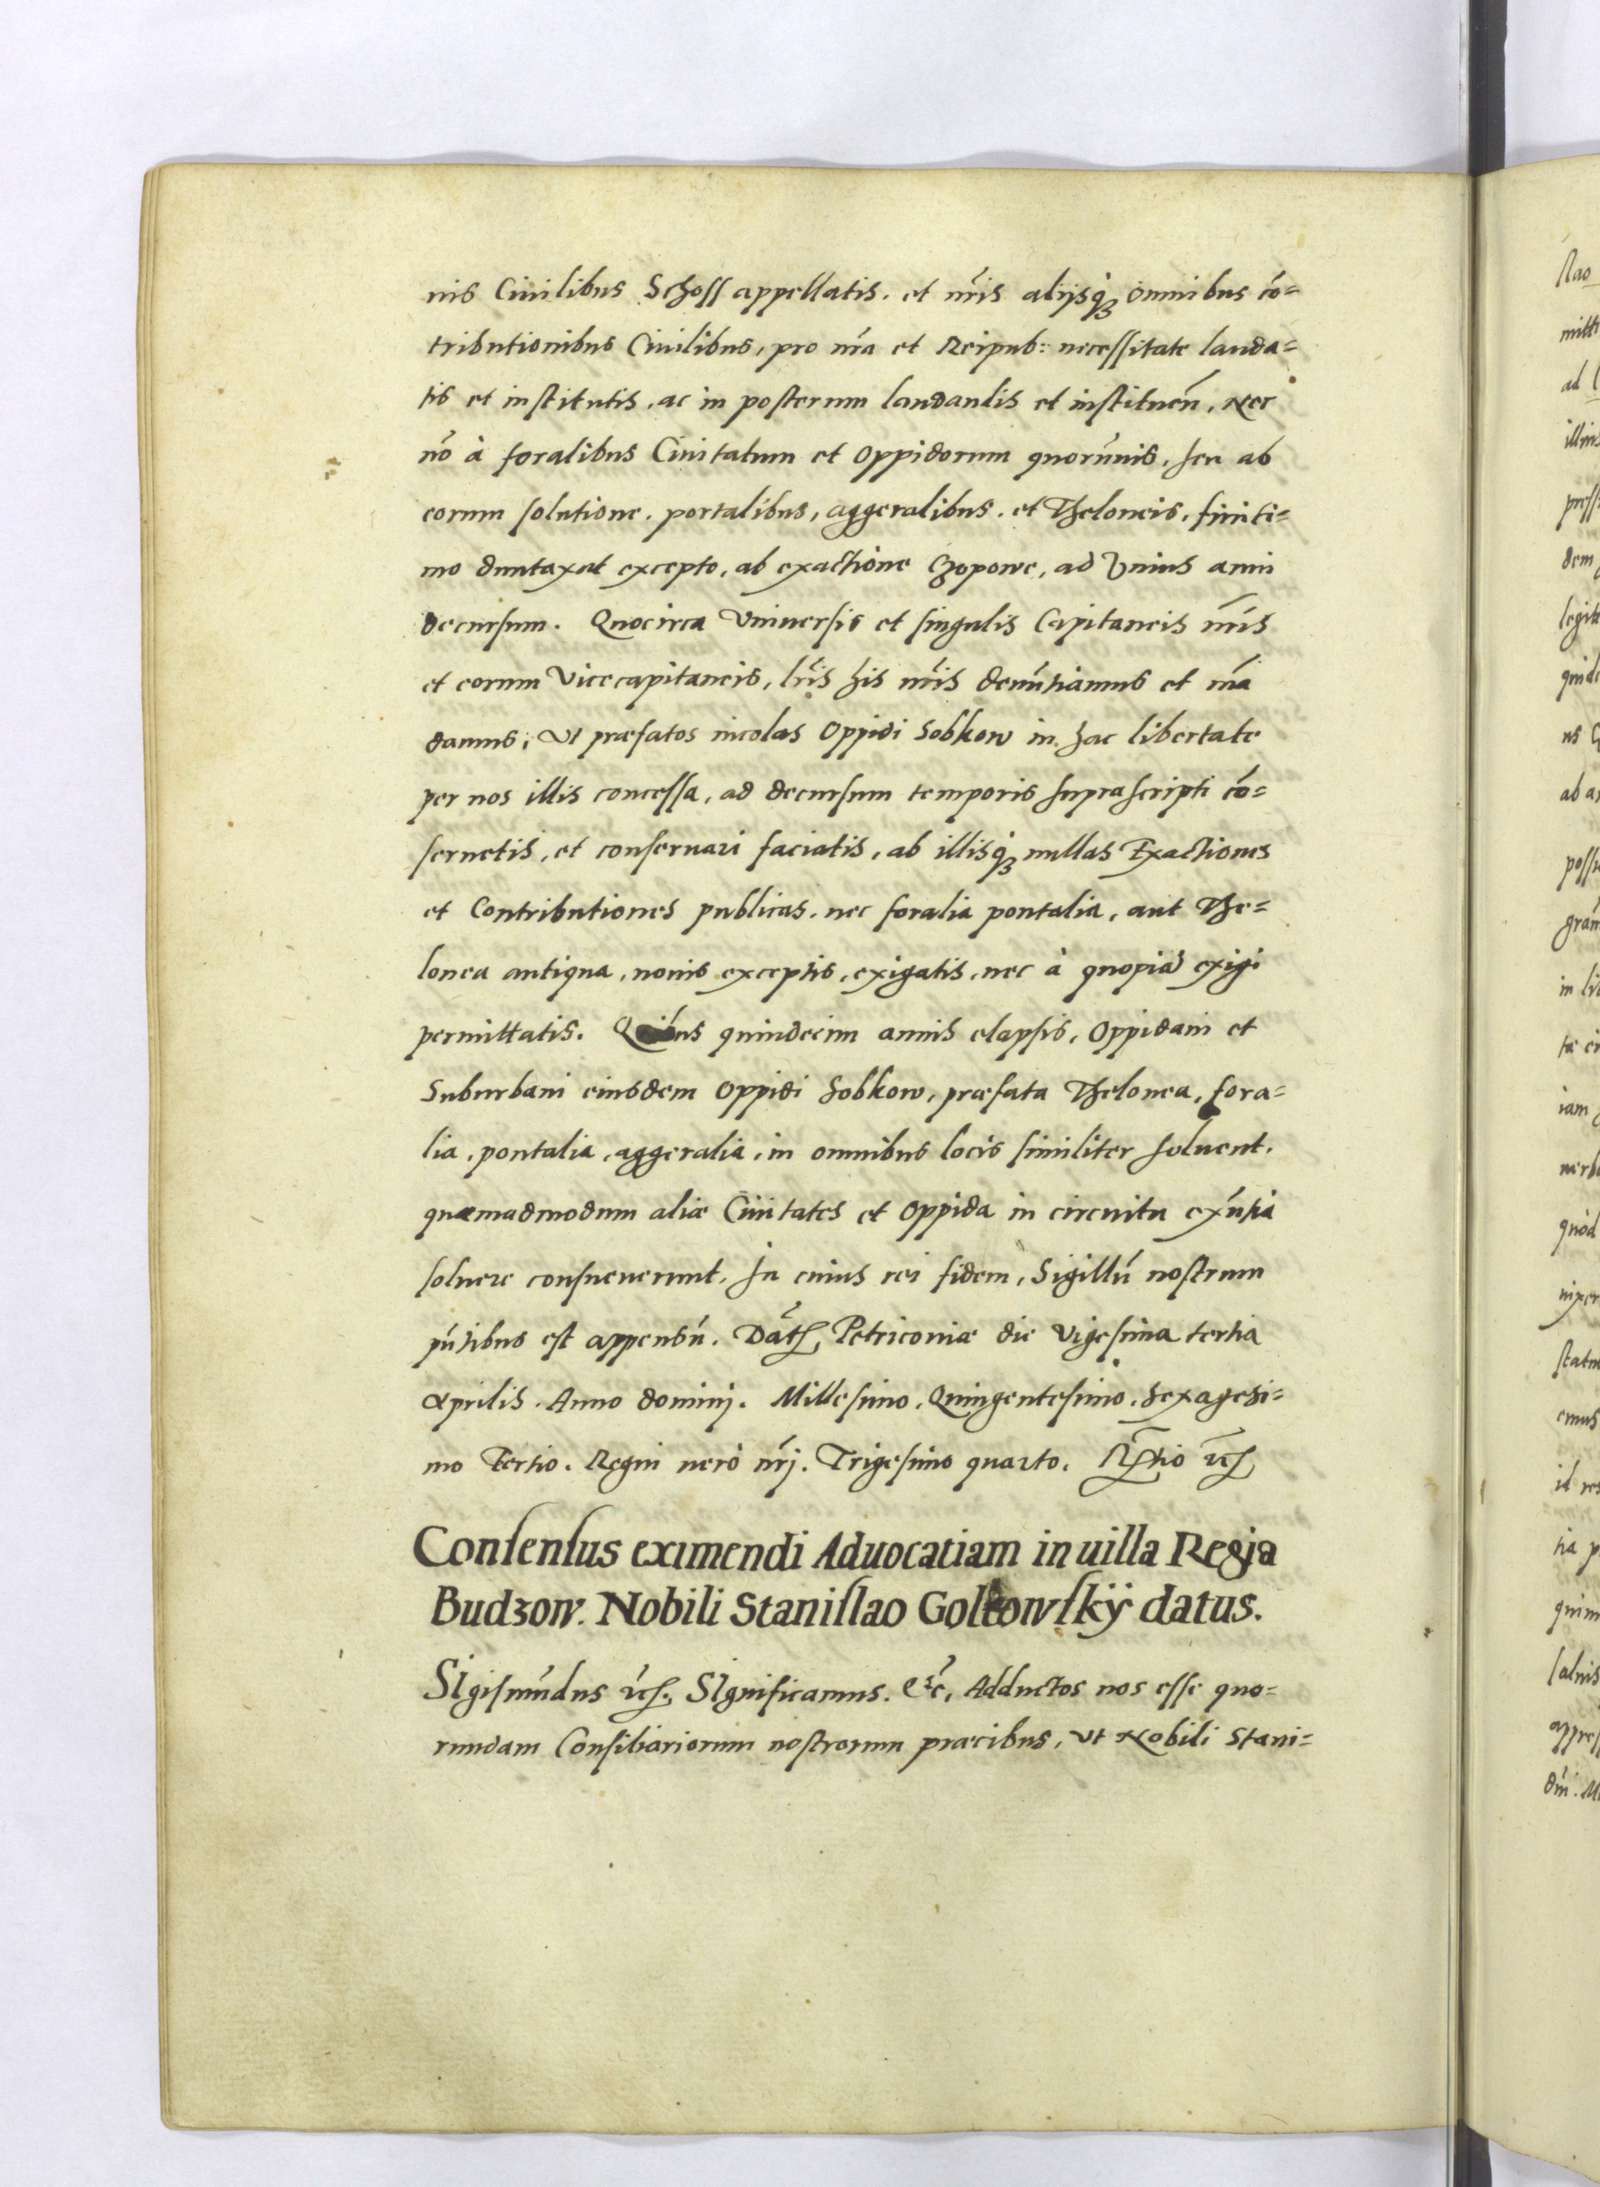 nis Ciuilibus Schoss appellatis. et nr̃is alijsq́ꝫ omnibus cõ=
tributionibus Ciuilibus, pro nr̃a et Reipub: necessitate lauda=
tis et institutis, ac in posterum laudandis et instituen̄, Nec
nõ à foralibus Ciuitatum et Oppidorum quorũuis, seu ab
eorum solutione. portalibus, aggeralibus. et Theloneis, finiti=
mo duntaxat excepto, ab exactione Czopowe, ad Vnius anni
decursum. Quocirca Vniuersis et singulis Capitaneis nr̃is
et eorum Vicecapitaneis, lr̃is his nr̃is denũtiamus et mã
damus, Vt præfatos incolas Oppidi Sobkow in hac libertate
per nos illis concessa, ad decursum temporis suprascripti cõ=
seruetis, et conseruari faciatis, ab illisq́ꝫ nullas Exactiones
et Contributiones publicas. nec foralia pontalia, aut The=
lonea antiqua, nouis exceptis, exigatis, nec à quopiã exigi
permittatis. Quibus quindecim annis elapsis, Oppidani et
Suburbani eiusdem Oppidi Sobkow, præfata Thelonea, fora=
lia, pontalia, aggeralia, in omnibus locis similiter soluent.
quæmadmodum aliæ Ciuitates et Oppida in circuitu exñtia
soluere consueuerunt. In cuius rei fidem, Sigillũ nostrum
pñtibus est appensũ. Dãt Petricouiæ die Vigesima tertia
Aprilis. Anno dominj. Millesimo. Quingentesimo. Sexagesi=
mo Tertio. Regni uerò nr̃j. Trigesimo quarto. Rɫtio &c
Consensus eximendi Aduocatiam in uilla Regia
Budzow. Nobili Stanislao Golkowskÿ datus.
Sigismũdus &c. Significamus. &c̃, Adductos nos esse quo=
rundam Consiliariorum nostrorum præcibus, Vt Nobili Stani=